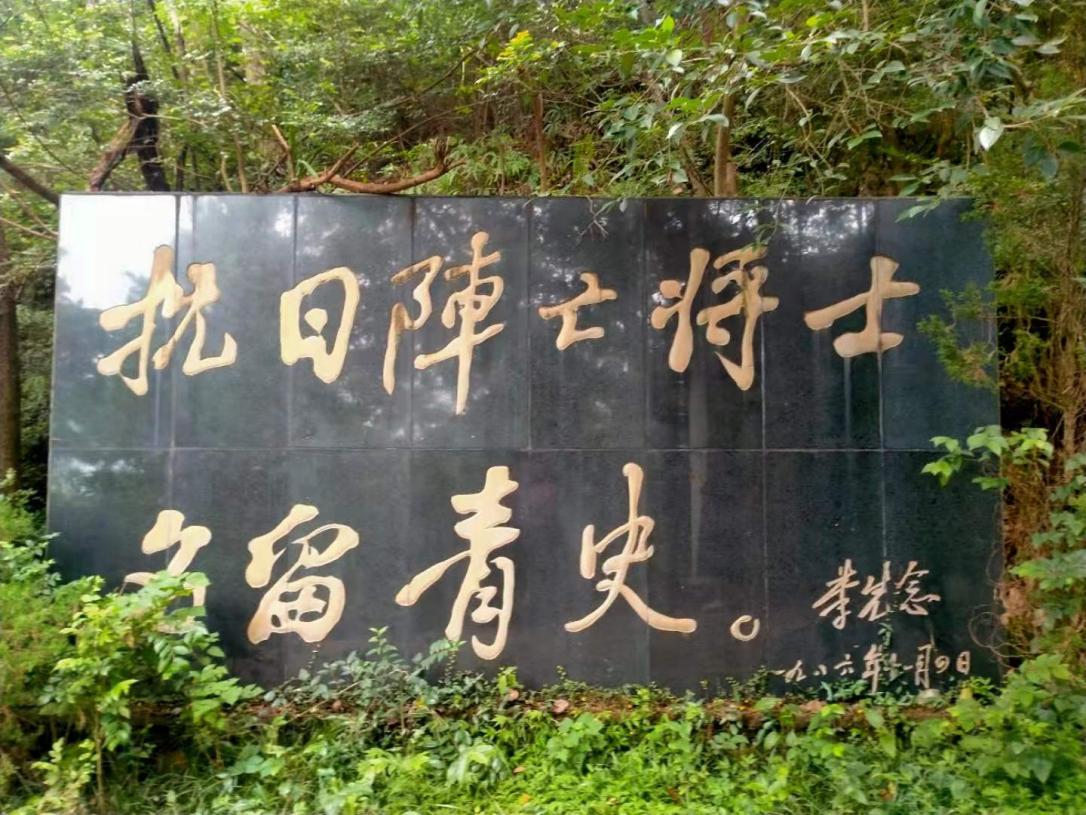 抗日陣亡将士
名留青史。
李先念
一九八六年十一月四日